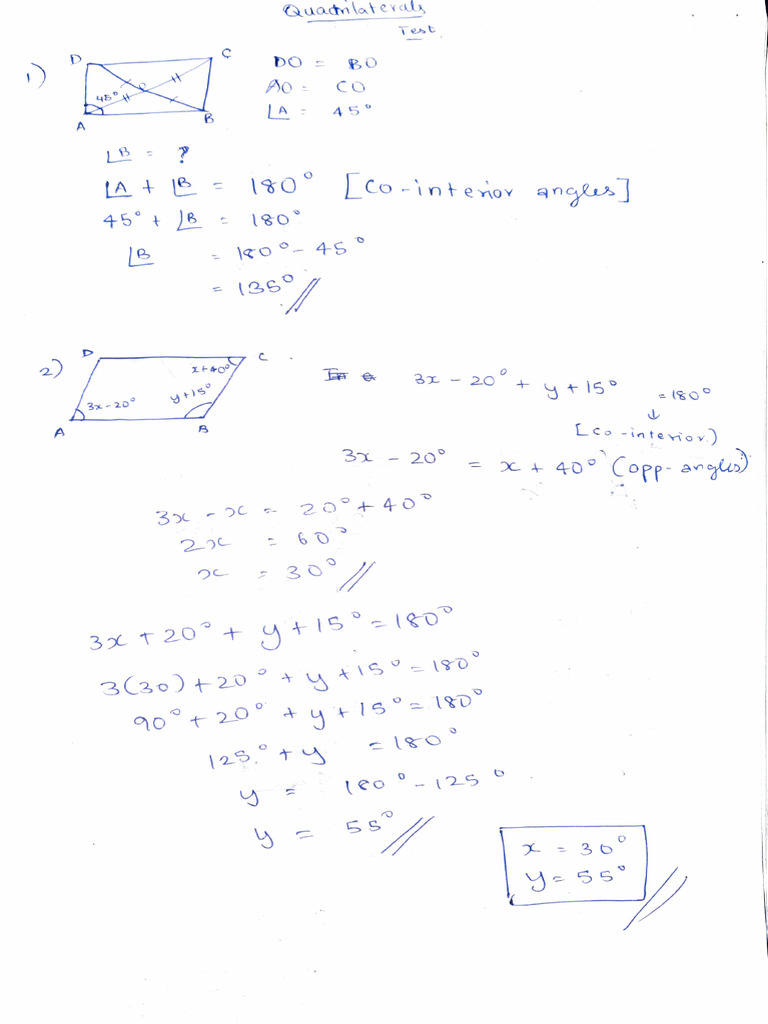 Quadrilaterals
Test
1)
D C
45°
A B
DO = BO
AO = CO
∠A = 45°
∠B = ?
∠A + ∠B = 180° [Co-interior angles]
45° + ∠B = 180°
∠B = 180° - 45°
= 135° //
2)
D C
x+40°
3x-20° y+15°
A B
3x - 20° + y + 15° = 180°
↓
[Co-interior)
3x - 20° = x + 40° (opp-angles)
3x - x = 20° + 40°
2x = 60°
x = 30° //
3x + 20° + y + 15° = 180°
3(30) + 20° + y + 15° = 180°
90° + 20° + y + 15° = 180°
125° + y = 180°
y = 180° - 125°
y = 55° //
x = 30°
y = 55° //